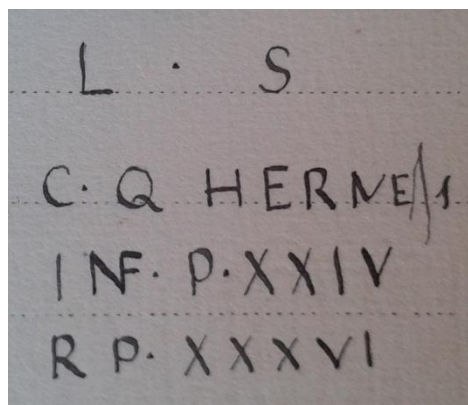 L · S
C · Q HERNE/1
INF · P · XXIV
R P · XXXVI